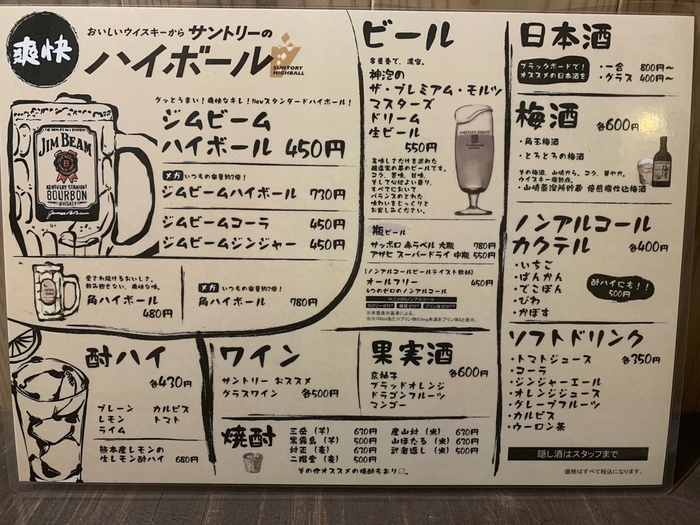 爽快
おいしいウイスキーから サントリーの
ハイボール
SUNTORY
HIGHBALL
グッとうまい！爽快なキレ！Newスタンダードハイボール！
ジムビーム
ハイボール 450円
メガ いつもの容量約2倍！
ジムビームハイボール 730円
ジムビームコーラ 450円
ジムビームジンジャー 450円
JIM BEAM
KENTUCKY STRAIGHT
BOURBON
WHISKEY
愛され続けるおいしさ。
飲み飽きない、爽快な味。
角ハイボール
480円
メガ いつもの容量約2倍！
角ハイボール 780円
ビール
神泡の
ザ・プレミアム・モルツ
マスターズ
ドリーム
生ビール
550円
瓶ビール
サッポロ 赤ラベル 大瓶 780円
アサヒ スーパードライ 中瓶 550円
(ノンアルコールビールテイスト飲料)
オールフリー 450円
4つのゼロのノンアルコール
ALC.0.00%ノンアルコール
カロリーゼロ 糖質ゼロ プリン体ゼロ
日本酒
ブラックボードで！
オススメの日本酒を
・一合 800円〜
・グラス 400円〜
梅酒 各600円
・角玉梅酒
・とろとろの梅酒
・山崎蒸溜所貯蔵 焙煎樽仕込梅酒
ノンアルコール
カクテル 各400円
・いちご
・ばんかん
・でこぽん
・びわ
・かぼす
酎ハイにも！！
500円
ソフトドリンク
各350円
・トマトジュース
・コーラ
・ジンジャーエール
・オレンジジュース
・グレープフルーツ
・カルピス
・ウーロン茶
隠し酒はスタッフまで
価格はすべて税込になります。
酎ハイ
各430円
プレーン カルピス
レモン トマト
ライム
熊本産レモンの
生レモン酎ハイ 680円
ワイン
サントリー おススメ
グラスワイン 各500円
果実酒
各600円
京柚子
ブラッドオレンジ
ドラゴンフルーツ
マンゴー
焼酎
三岳 (芋) 630円
黒霧島 (芋) 500円
村正 (麦) 630円
二階堂 (麦) 500円
産山村 (米) 630円
山ほたる (米) 630円
武者返し (米) 500円
その他オススメの焼酎もあり〼。